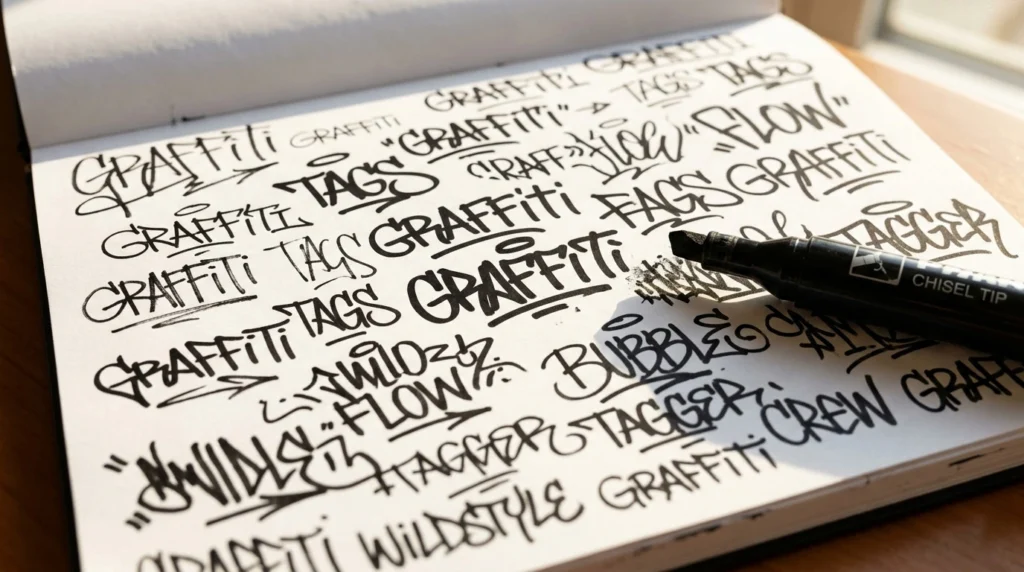 GRAFFITI
GRAFFITI TAGS TAGS
GRAFFITI GRAFFITI "GRAFFITI" FLOW "FLOW"
TAGS GRAFF
GRAFFITI GRAFFITI FAGS GRAFFITI
GRAFFITI TAGS GRAFFITI TAGGER
CHISEL TIP
GRAFFITI TAGS BUBBLE
FLOW
TAGGER TAGGER CREW GRAFF
GRAFFITI WILDSTYLE GRAFFITI